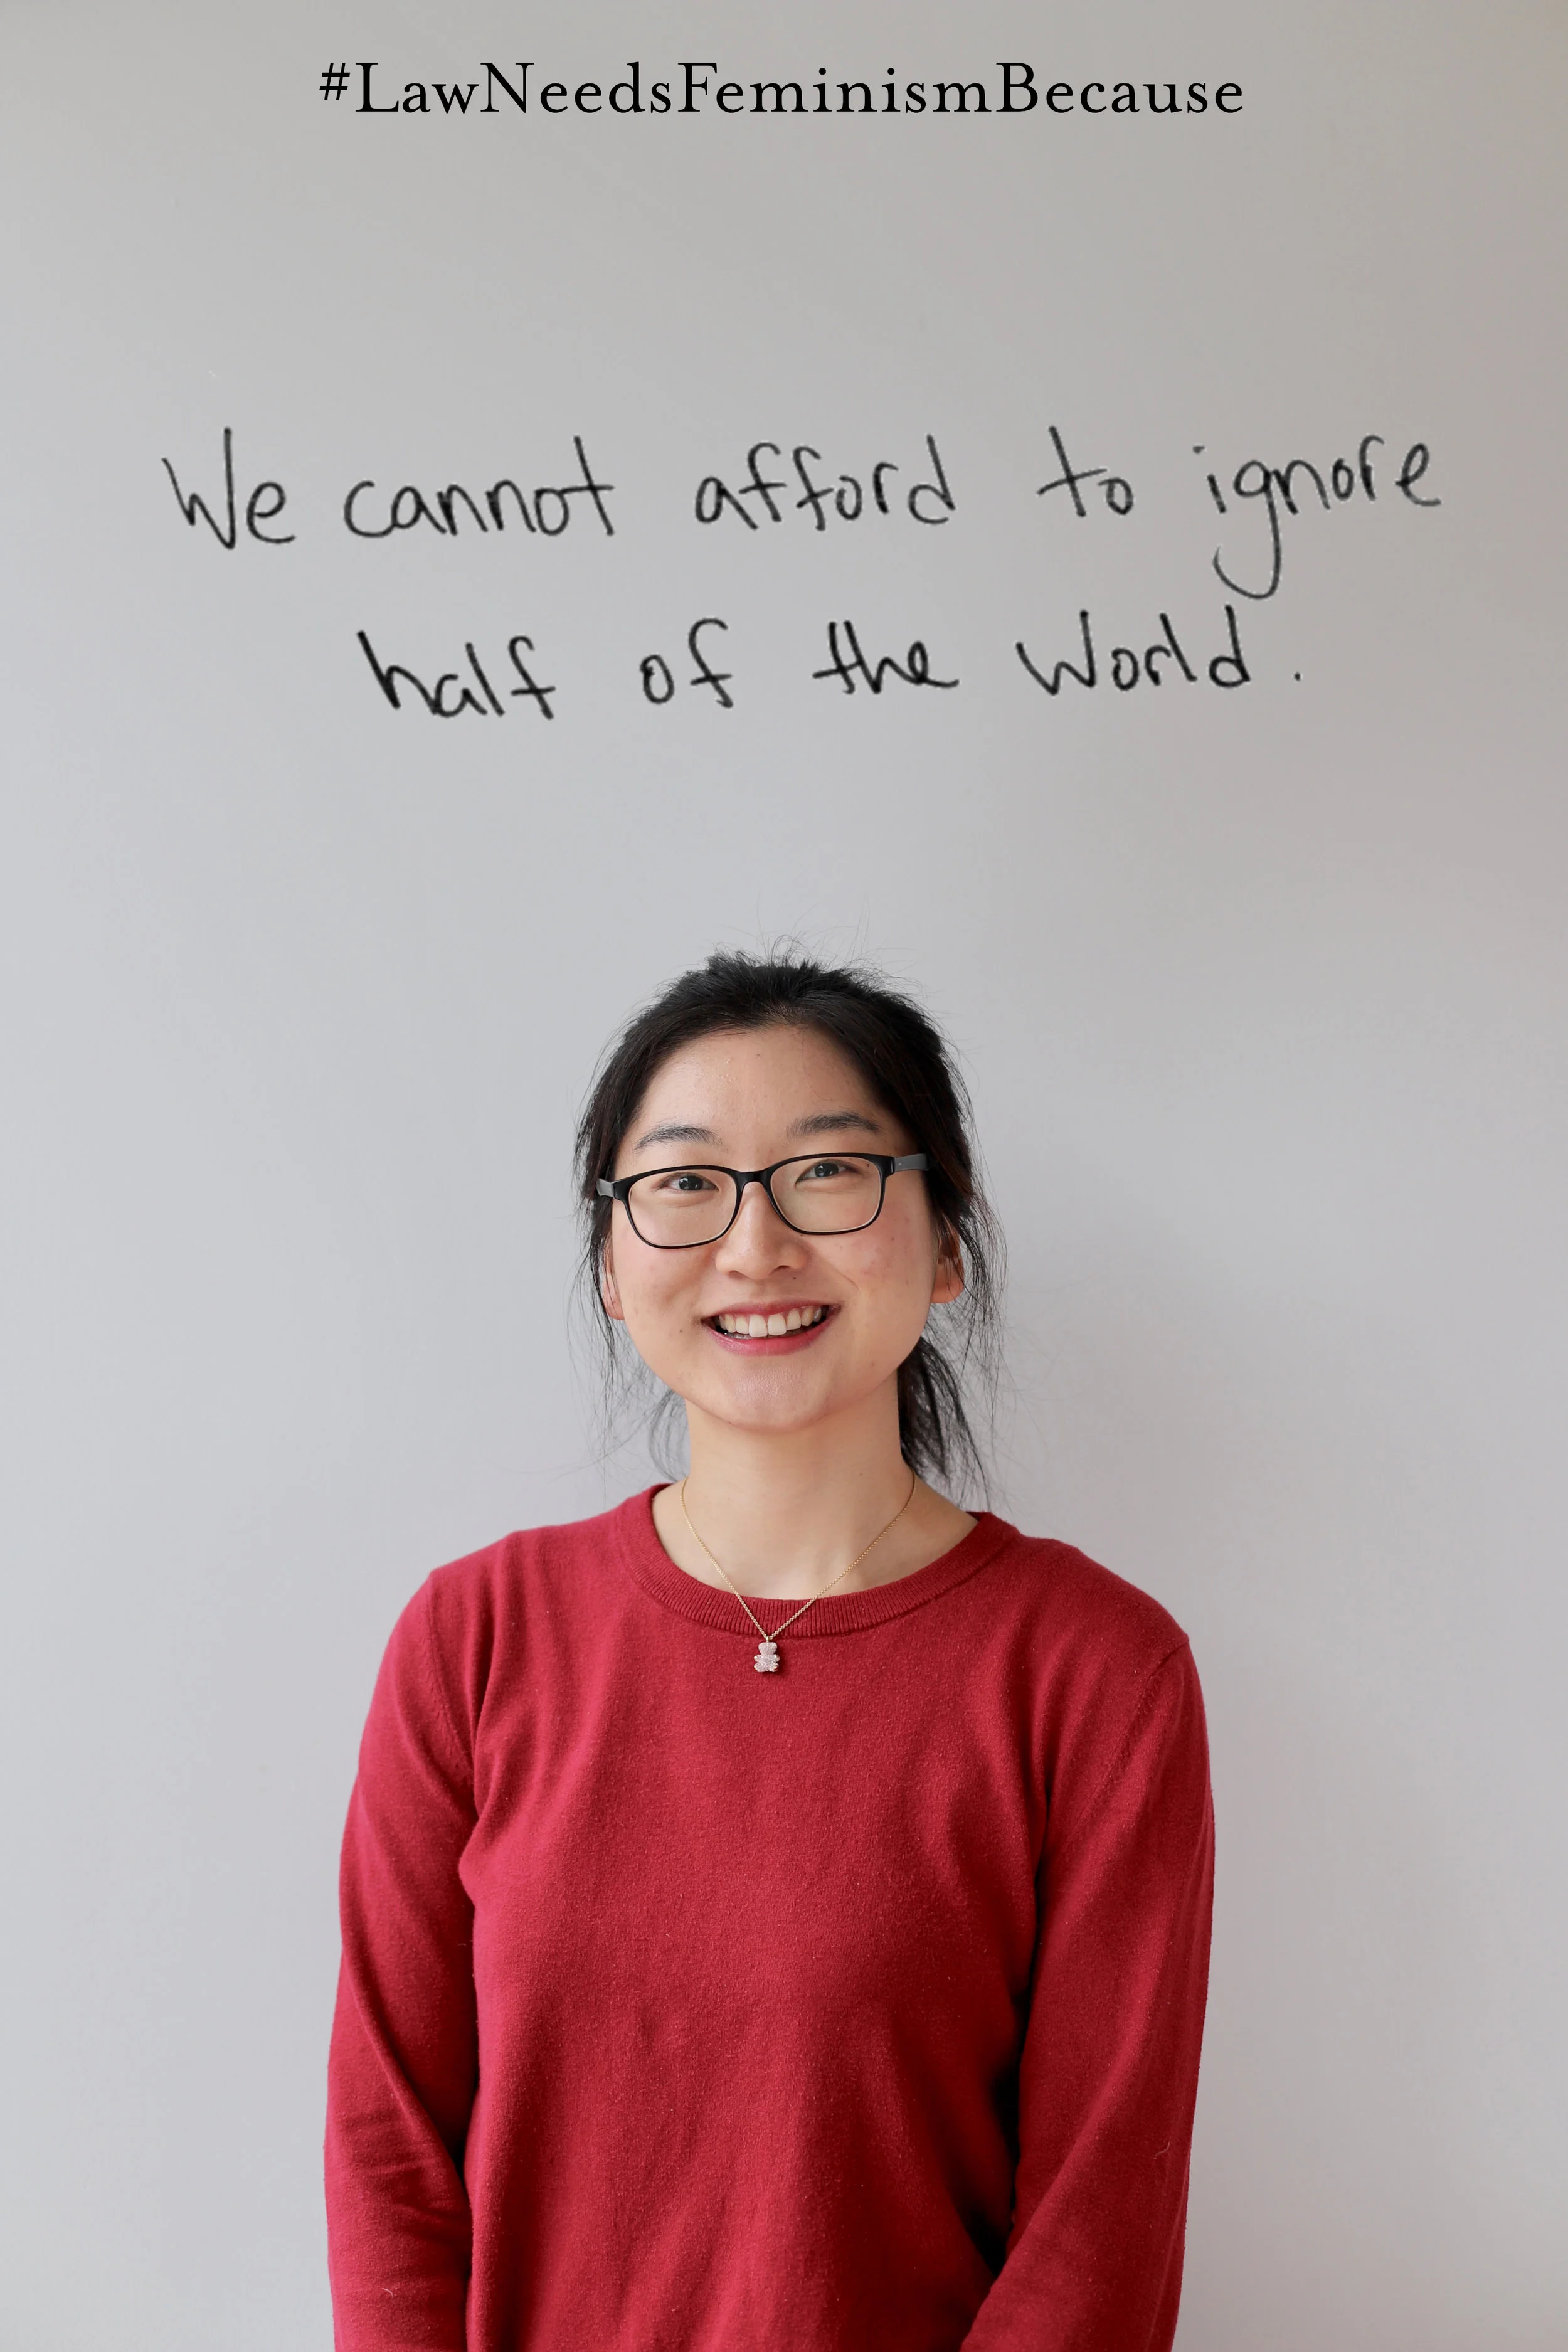 #LawNeedsFeminismBecause
We cannot afford to ignore
half of the world.